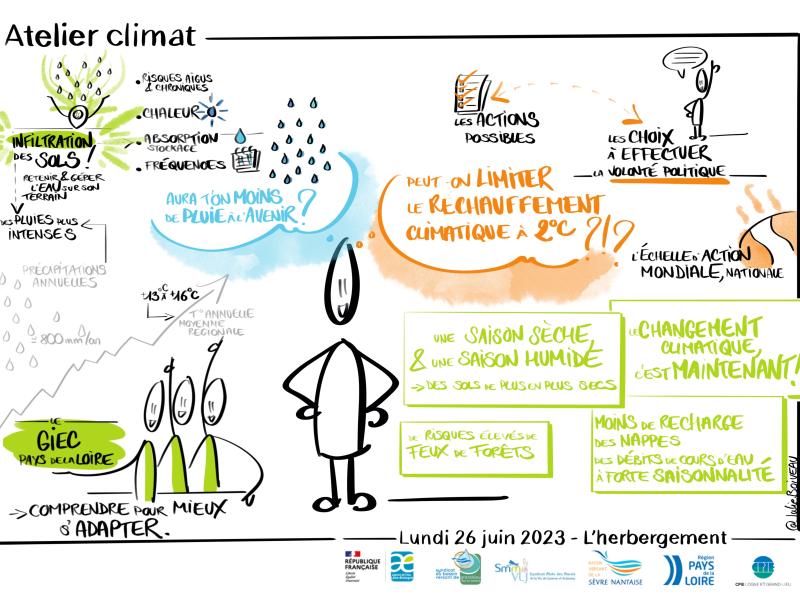 Atelier climat
RISQUES AIGUS
& CHRONIQUES
CHALEUR
ABSORPTION
STOCKAGE
FRÉQUENCES
INFILTRATION
DES SOLS !
RETENIR & GÉRER
L'EAU SUR SON
TERRAIN
DES PLUIES PLUS
INTENSES
PRÉCIPITATIONS
ANNUELLES
= 800 mm/an
+13°C à +16°C
T° ANNUELLE
MOYENNE
RÉGIONALE
AURA T'ON MOINS
DE PLUIE À L'AVENIR ?
LES ACTIONS
POSSIBLES
LES CHOIX
À EFFECTUER
LA VOLONTÉ POLITIQUE
PEUT-ON LIMITER
LE RÉCHAUFFEMENT
CLIMATIQUE À 2°C ?!?
L'ÉCHELLE D'ACTION
MONDIALE, NATIONALE
UNE SAISON SÈCHE
& UNE SAISON HUMIDE
→ DES SOLS DE PLUS EN PLUS SECS
LE CHANGEMENT
CLIMATIQUE,
C'EST MAINTENANT !
DE RISQUES ÉLEVÉS DE
FEUX DE FORÊTS
MOINS DE RECHARGE
DES NAPPES
DES DÉBITS DE COURS D'EAU
À FORTE SAISONNALITÉ
LE
GIEC
PAYS DE LA LOIRE
→ COMPRENDRE POUR MIEUX
S'ADAPTER.
@Julie Boiveau
Lundi 26 juin 2023 - L'herbergement
RÉPUBLIQUE
FRANÇAISE
Liberté
Égalité
Fraternité
SÈVRE NANTAISE
Région
PAYS
de la
LOIRE
CPIE LOGNE ET GRAND-LIEU